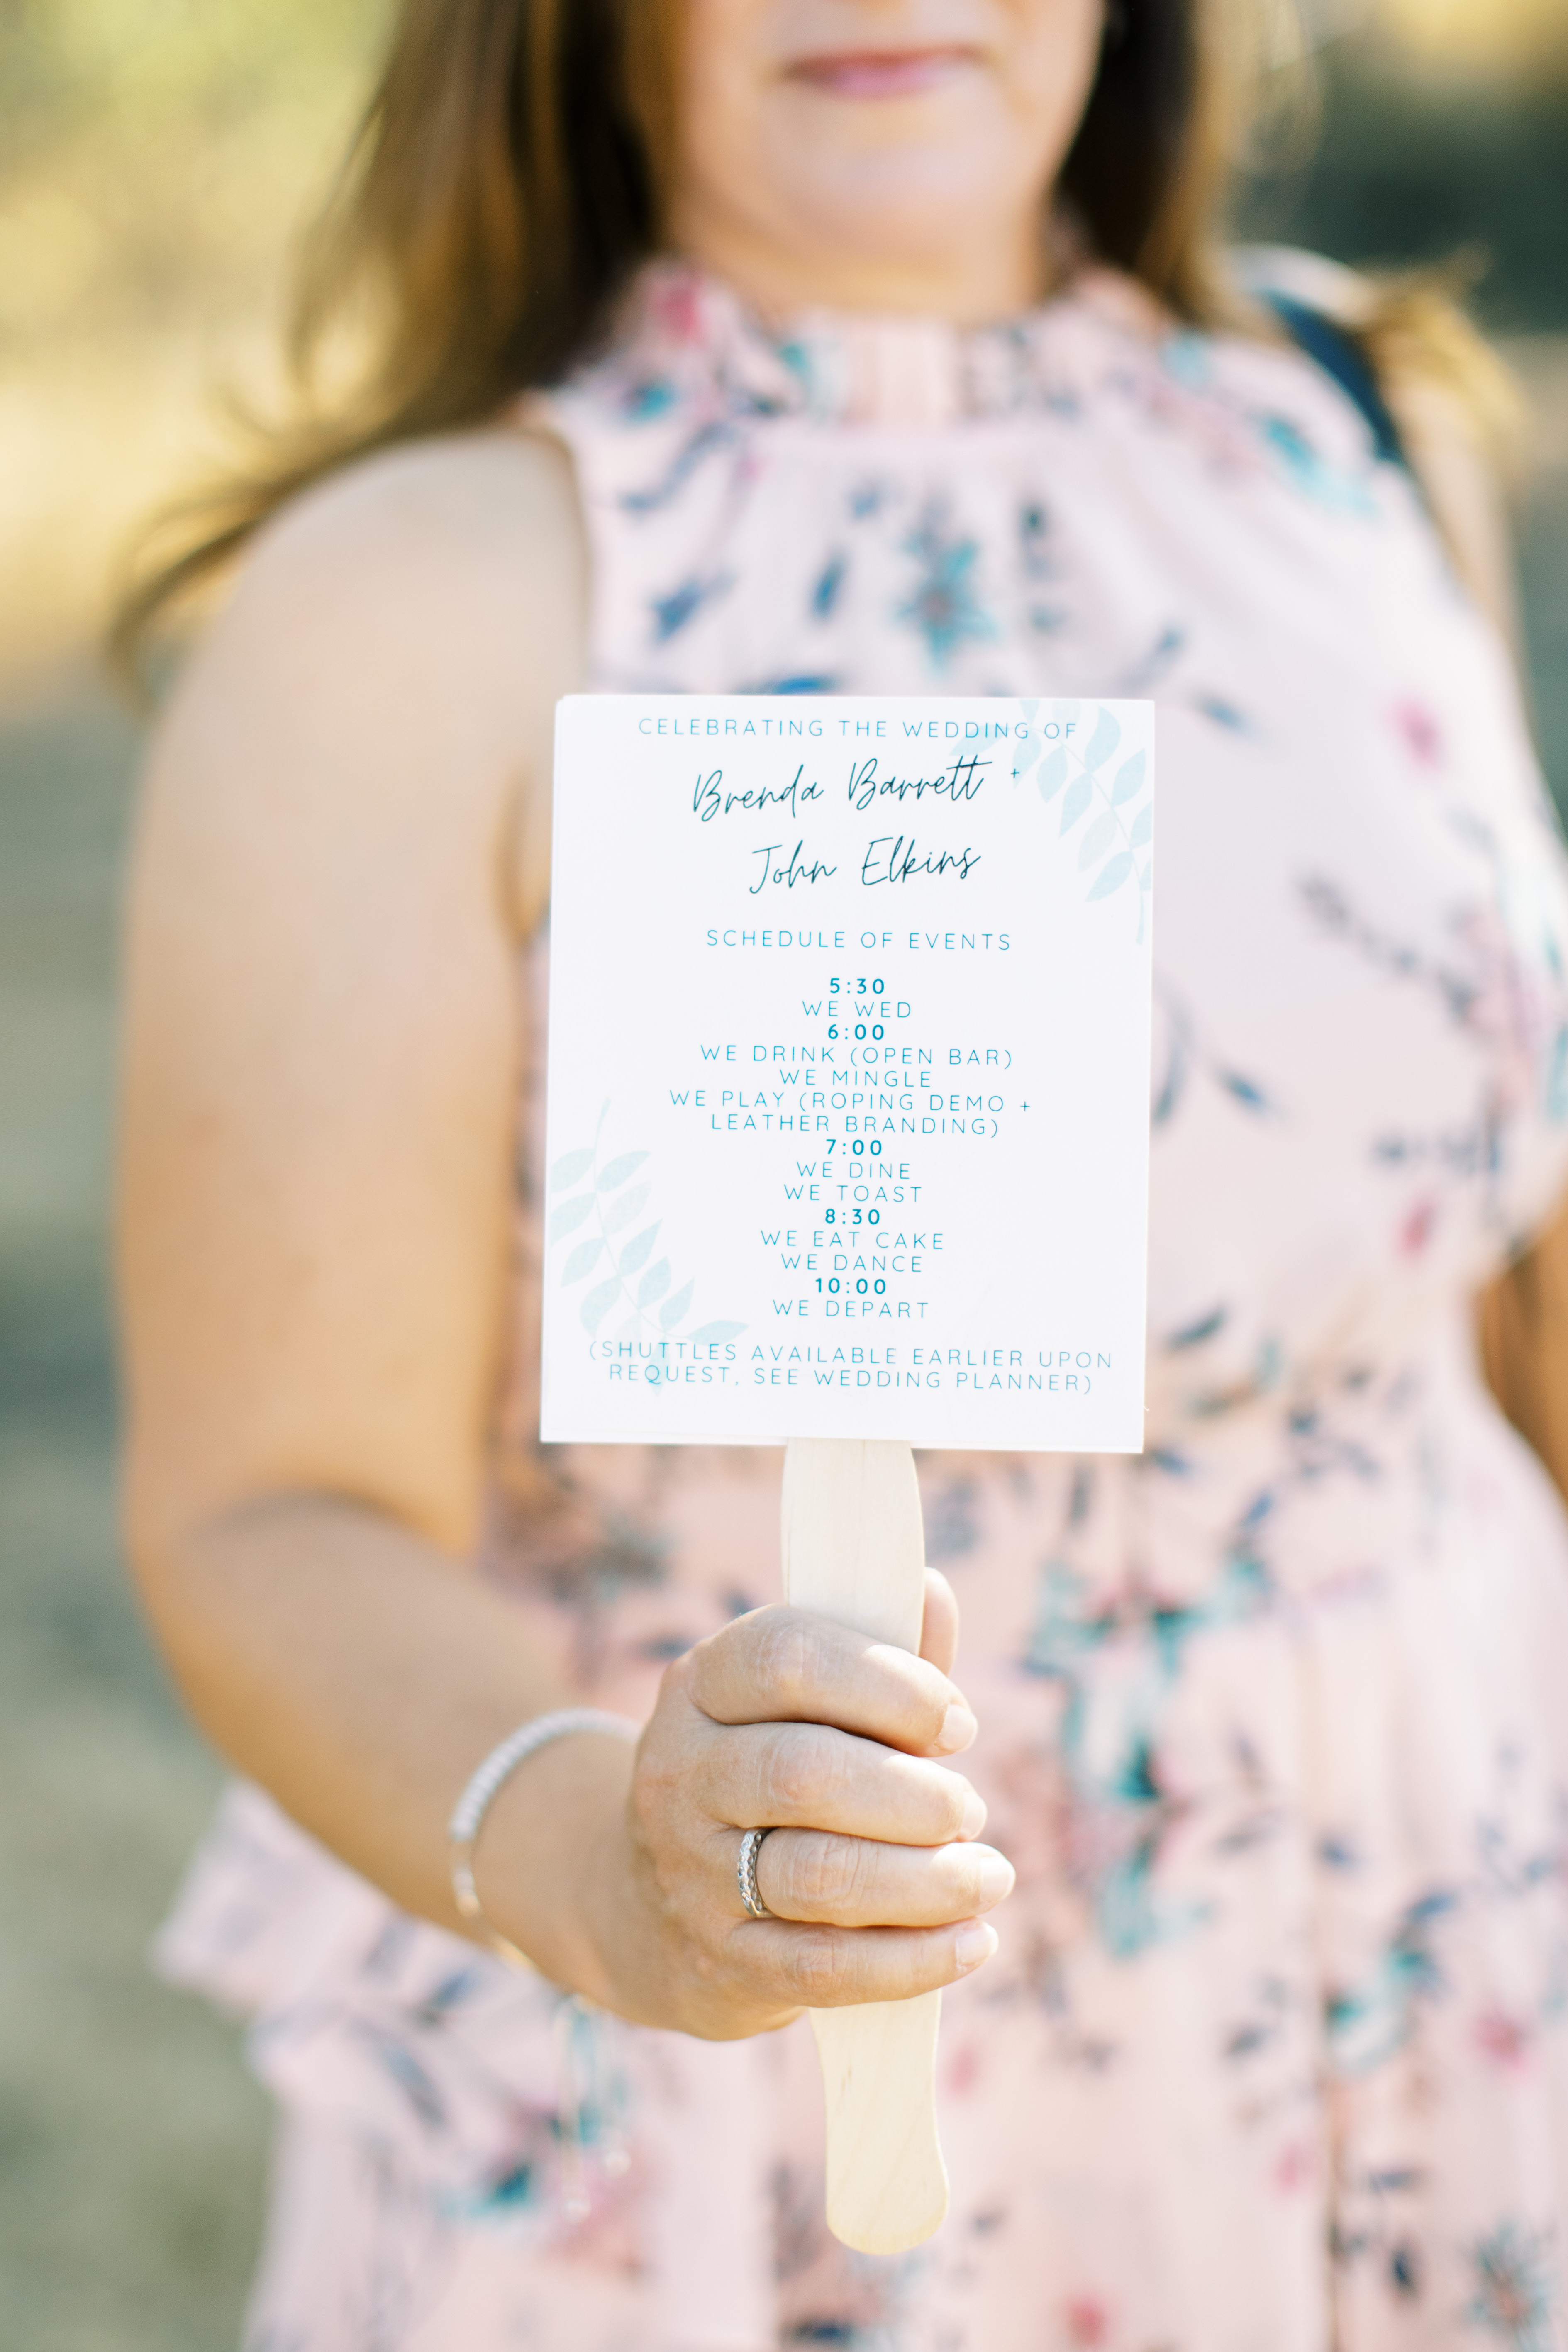 CELEBRATING THE WEDDING OF
Brenda Barrett +
John Elkins
SCHEDULE OF EVENTS
5:30
WE WED
6:00
WE DRINK (OPEN BAR)
WE MINGLE
WE PLAY (ROPING DEMO +
LEATHER BRANDING)
7:00
WE DINE
WE TOAST
8:30
WE EAT CAKE
WE DANCE
10:00
WE DEPART
(SHUTTLES AVAILABLE EARLIER UPON
REQUEST, SEE WEDDING PLANNER)